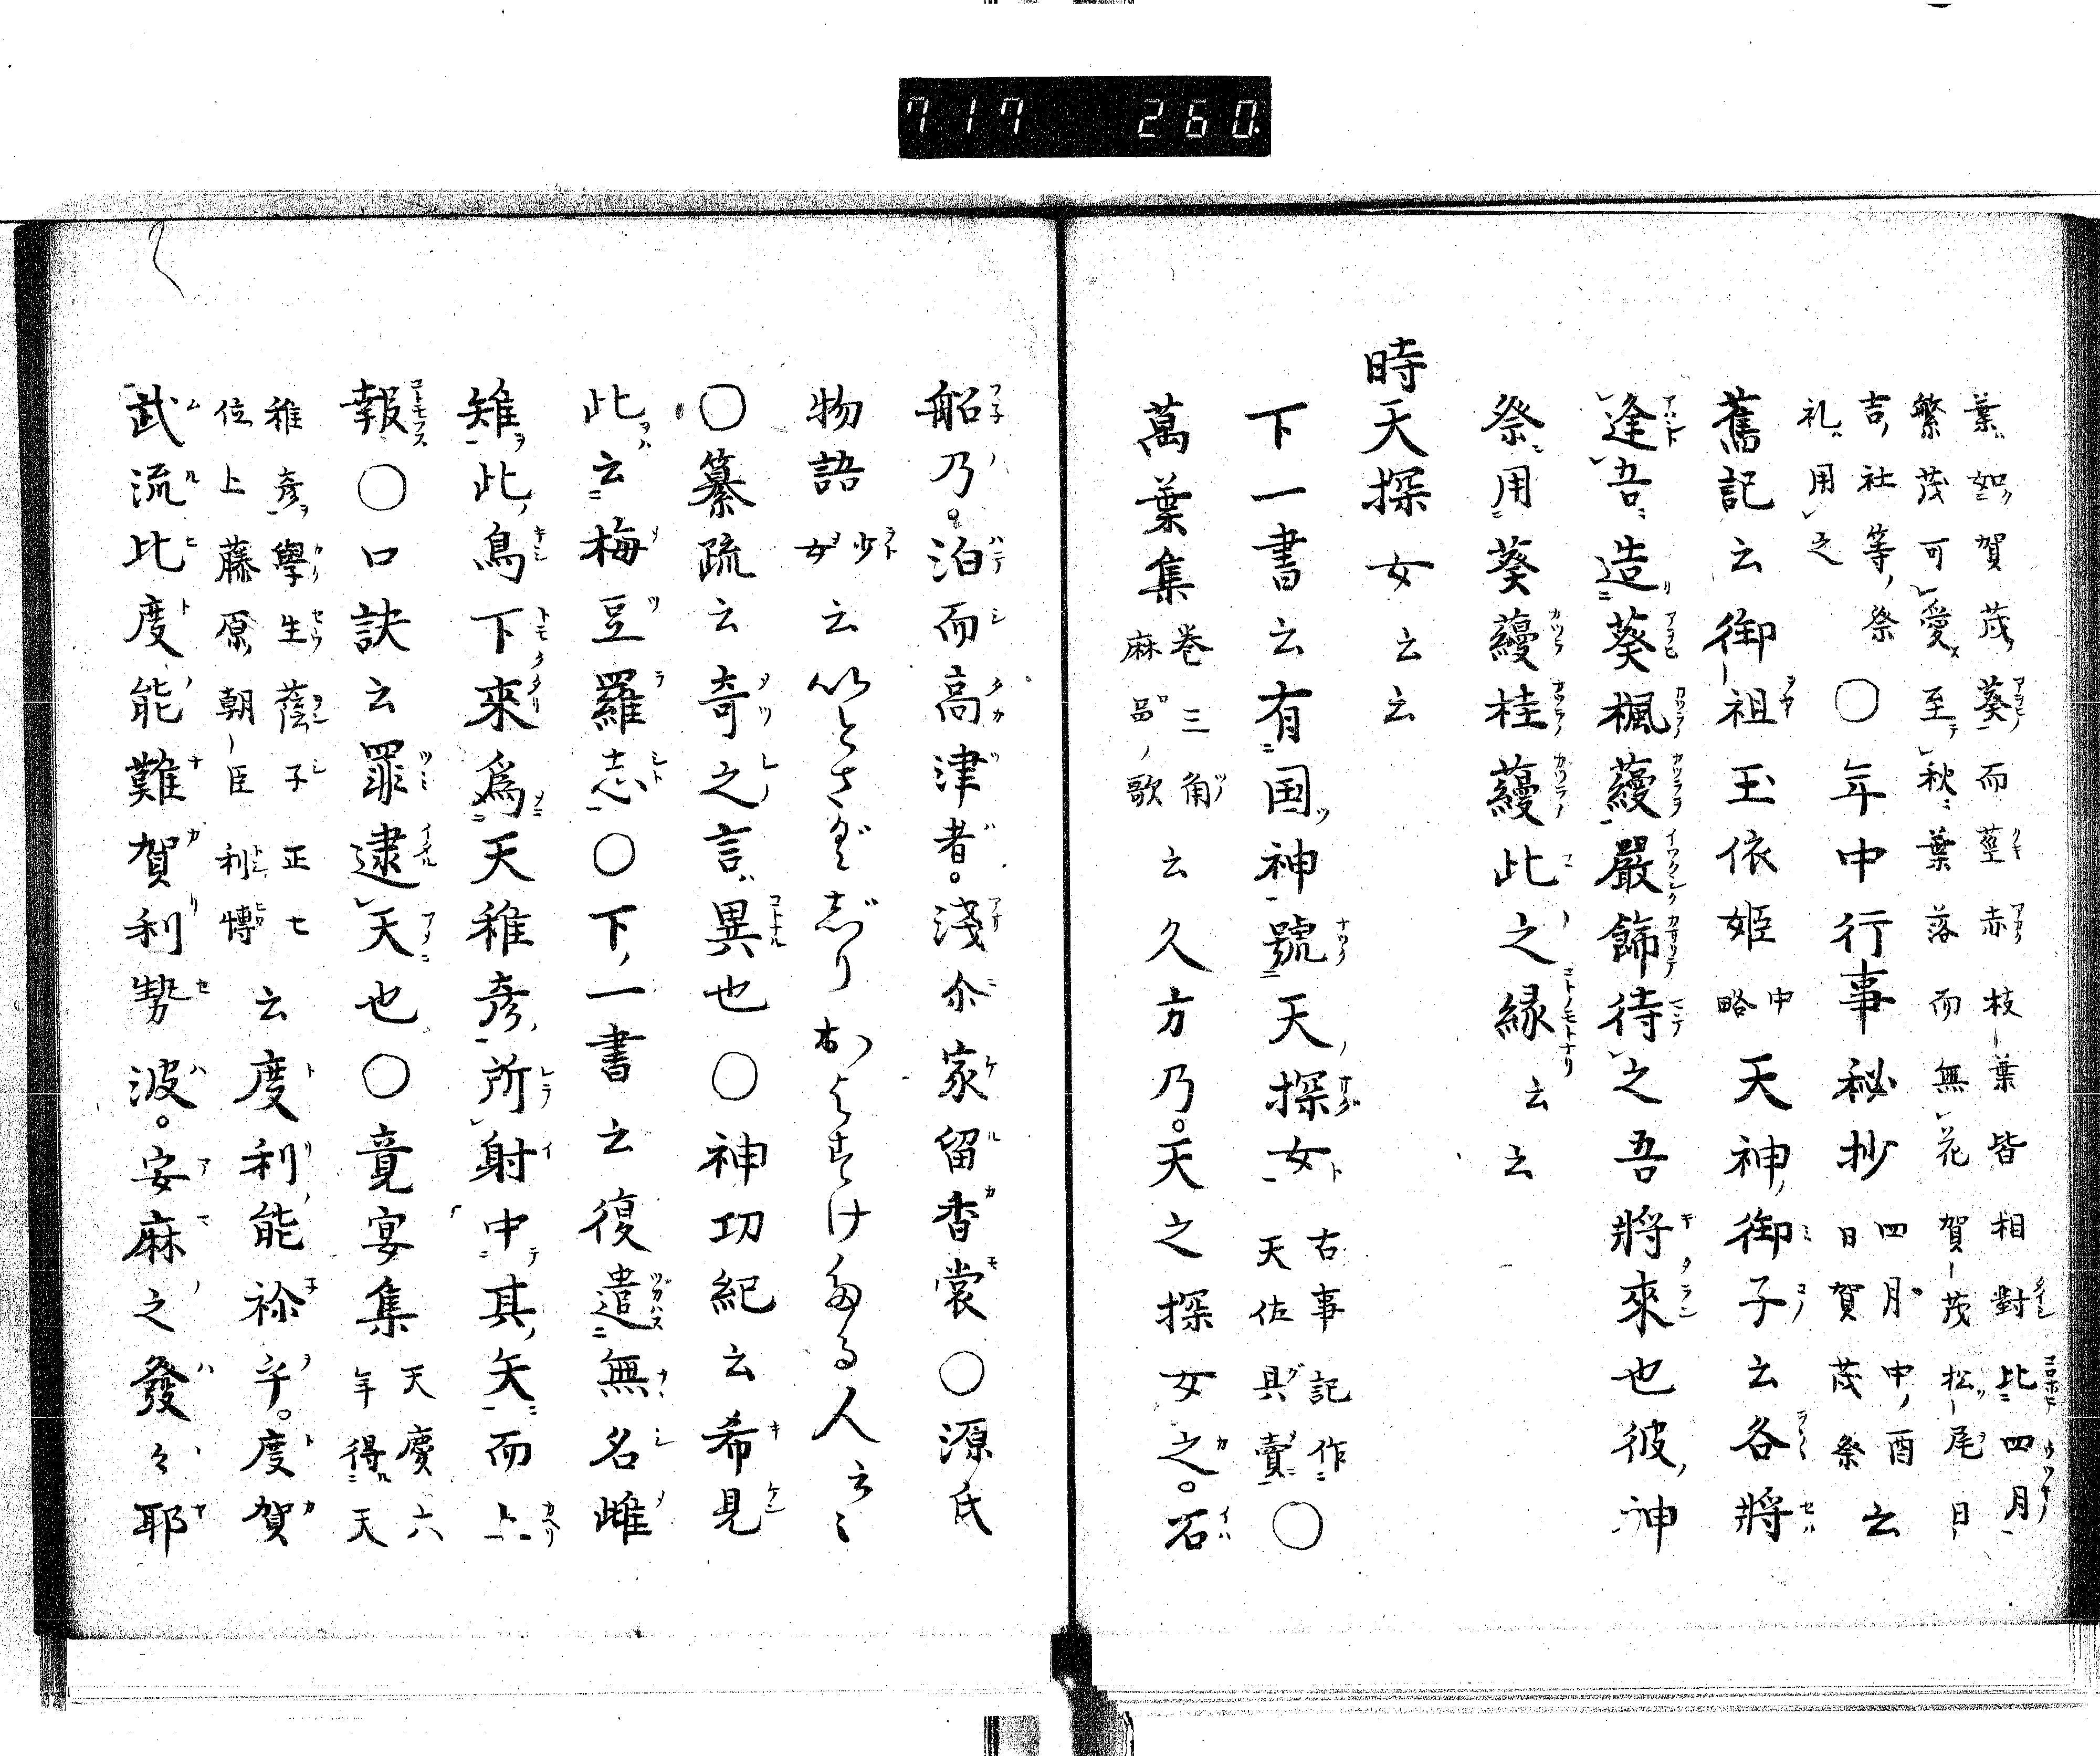 717 260.
葉如賀茂葵而莖赤枝葉皆相對比四月
繁茂可愛至秋葉落而無花賀茂松尾日
吉社等祭
礼用之
〇年中行事秘抄四月中酉日賀茂祭云
舊記云御祖玉依姫中略天神御子云各將
逢吾造葵楓蘰嚴餝待之吾將來也彼神
祭用葵蘰桂蘰此之縁云云
時天探女云云
下一書云有国神號天探女古事記作天佐具賣〇
萬葉集卷三角麻呂歌云久方乃。天之探女之。石
船乃。泊而高津者。淺尓家留香裳〇源氏
物語少女云いとさがなくおよすけたる人云〻
〇纂疏云奇之言異也〇神功紀云希見
此云梅豆羅志〇下一書云復遣無名雌
雉此鳥下來爲天稚彦所射中其矢而上
報〇口訣云罪逮天也〇竟宴集天慶六年得天
稚彦學生蔭子正七
位上藤原朝臣利博
云度利能祢乎。度賀
武流比度能難賀利勢波。安麻之發々耶